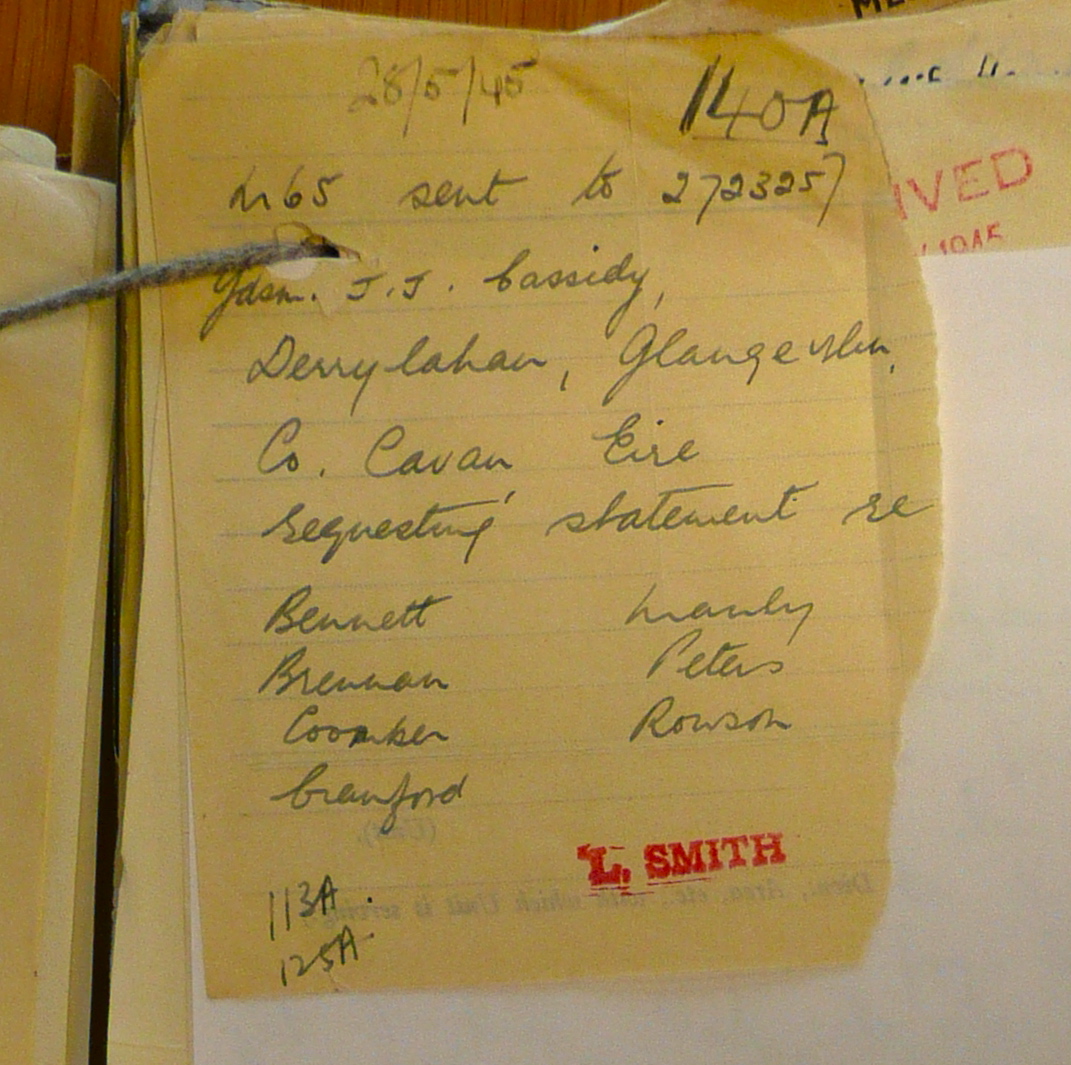 28/5/45 140A
M65 sent to 2723257
Gdsm. J.J. Cassidy,
Derrylahan, Glangevlin,
Co. Cavan Eire
requesting statement re
Bennett Manly
Brennan Peters
Coomber Rowson
Crawford
L. SMITH
113A
125A
IVED